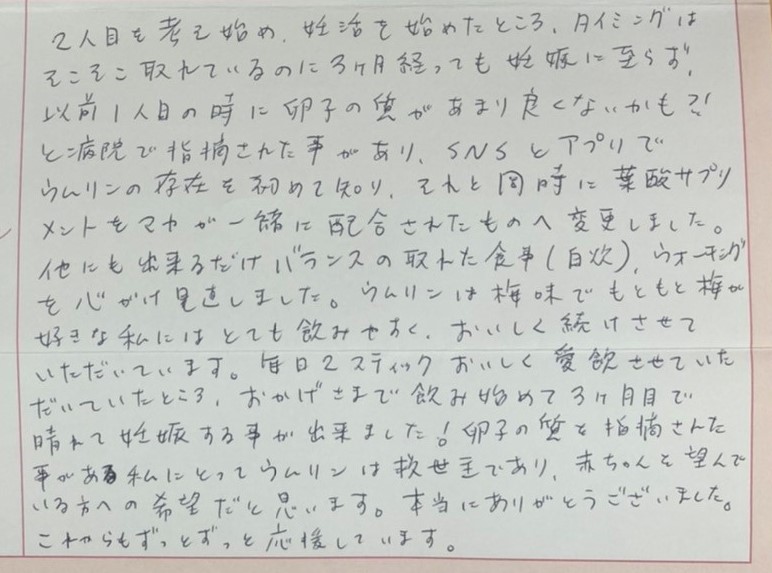 2人目を考え始め、妊活を始めたところ、タイミングは
そこそこ取れているのに3ヶ月経っても妊娠に至らず、
以前1人目の時に卵子の質があまり良くないかも?!
と病院で指摘された事があり、SNSとアプリで
ウムリンの存在を初めて知り、それと同時に葉酸サプリ
メントをマカが一緒に配合されたものへ変更しました。
他にも出来るだけバランスの取れた食事(自炊)、ウオーキング
を心がけ見直しました。ウムリンは梅味でもともと梅が
好きな私にはとても飲みやすく、おいしく続けさせて
いただいています。毎日2スティックおいしく愛飲させていた
だいていたところ、おかげさまで飲み始めて3ヶ月目で
晴れて妊娠する事が出来ました!卵子の質を指摘された
事がある私にとってウムリンは救世主であり、赤ちゃんを望んで
いる方への希望だと思います。本当にありがとうございました。
これからもずっとずっと応援しています。